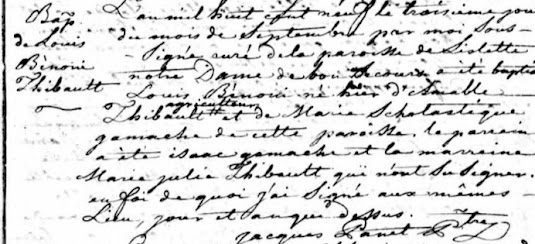 Bap
de Louis
Benoni
Thibault
L'an mil huit cent neuf le troisieme jour
du mois de Septembre par moi Sous-
Signé curé de la paroisse de Lislette
notre Dame de bon Secours a été baptisé
Louis Bénoni né hier d'Amable
agriculteur
Thibault et de Marie Scholastique
gamache de cette paroisse. le parrain
a été isaac gamache et la marreine
Marie julie Thibault qui n'ont Su Signer.
en foi de quoi j'ai Signé aux mêmes
Lieu, jour et an que dessus.
jacques Panet Ptre